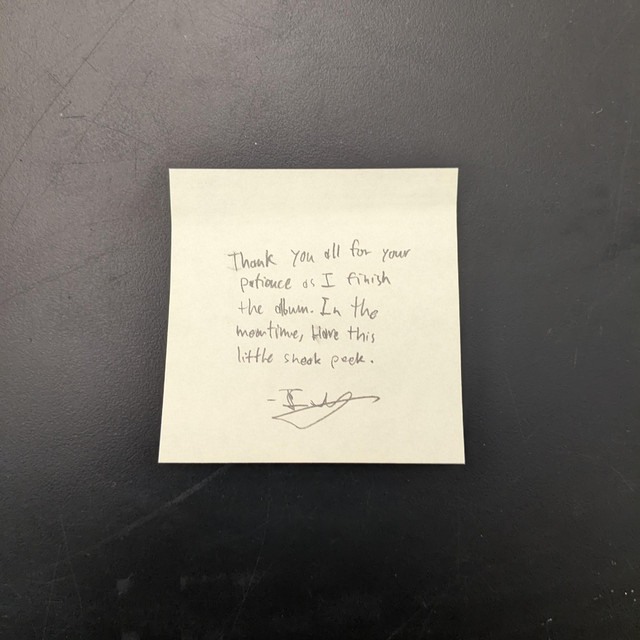 Thank you all for your
patience as I finish
the album. In the
meantime, Have this
little sneak peek.